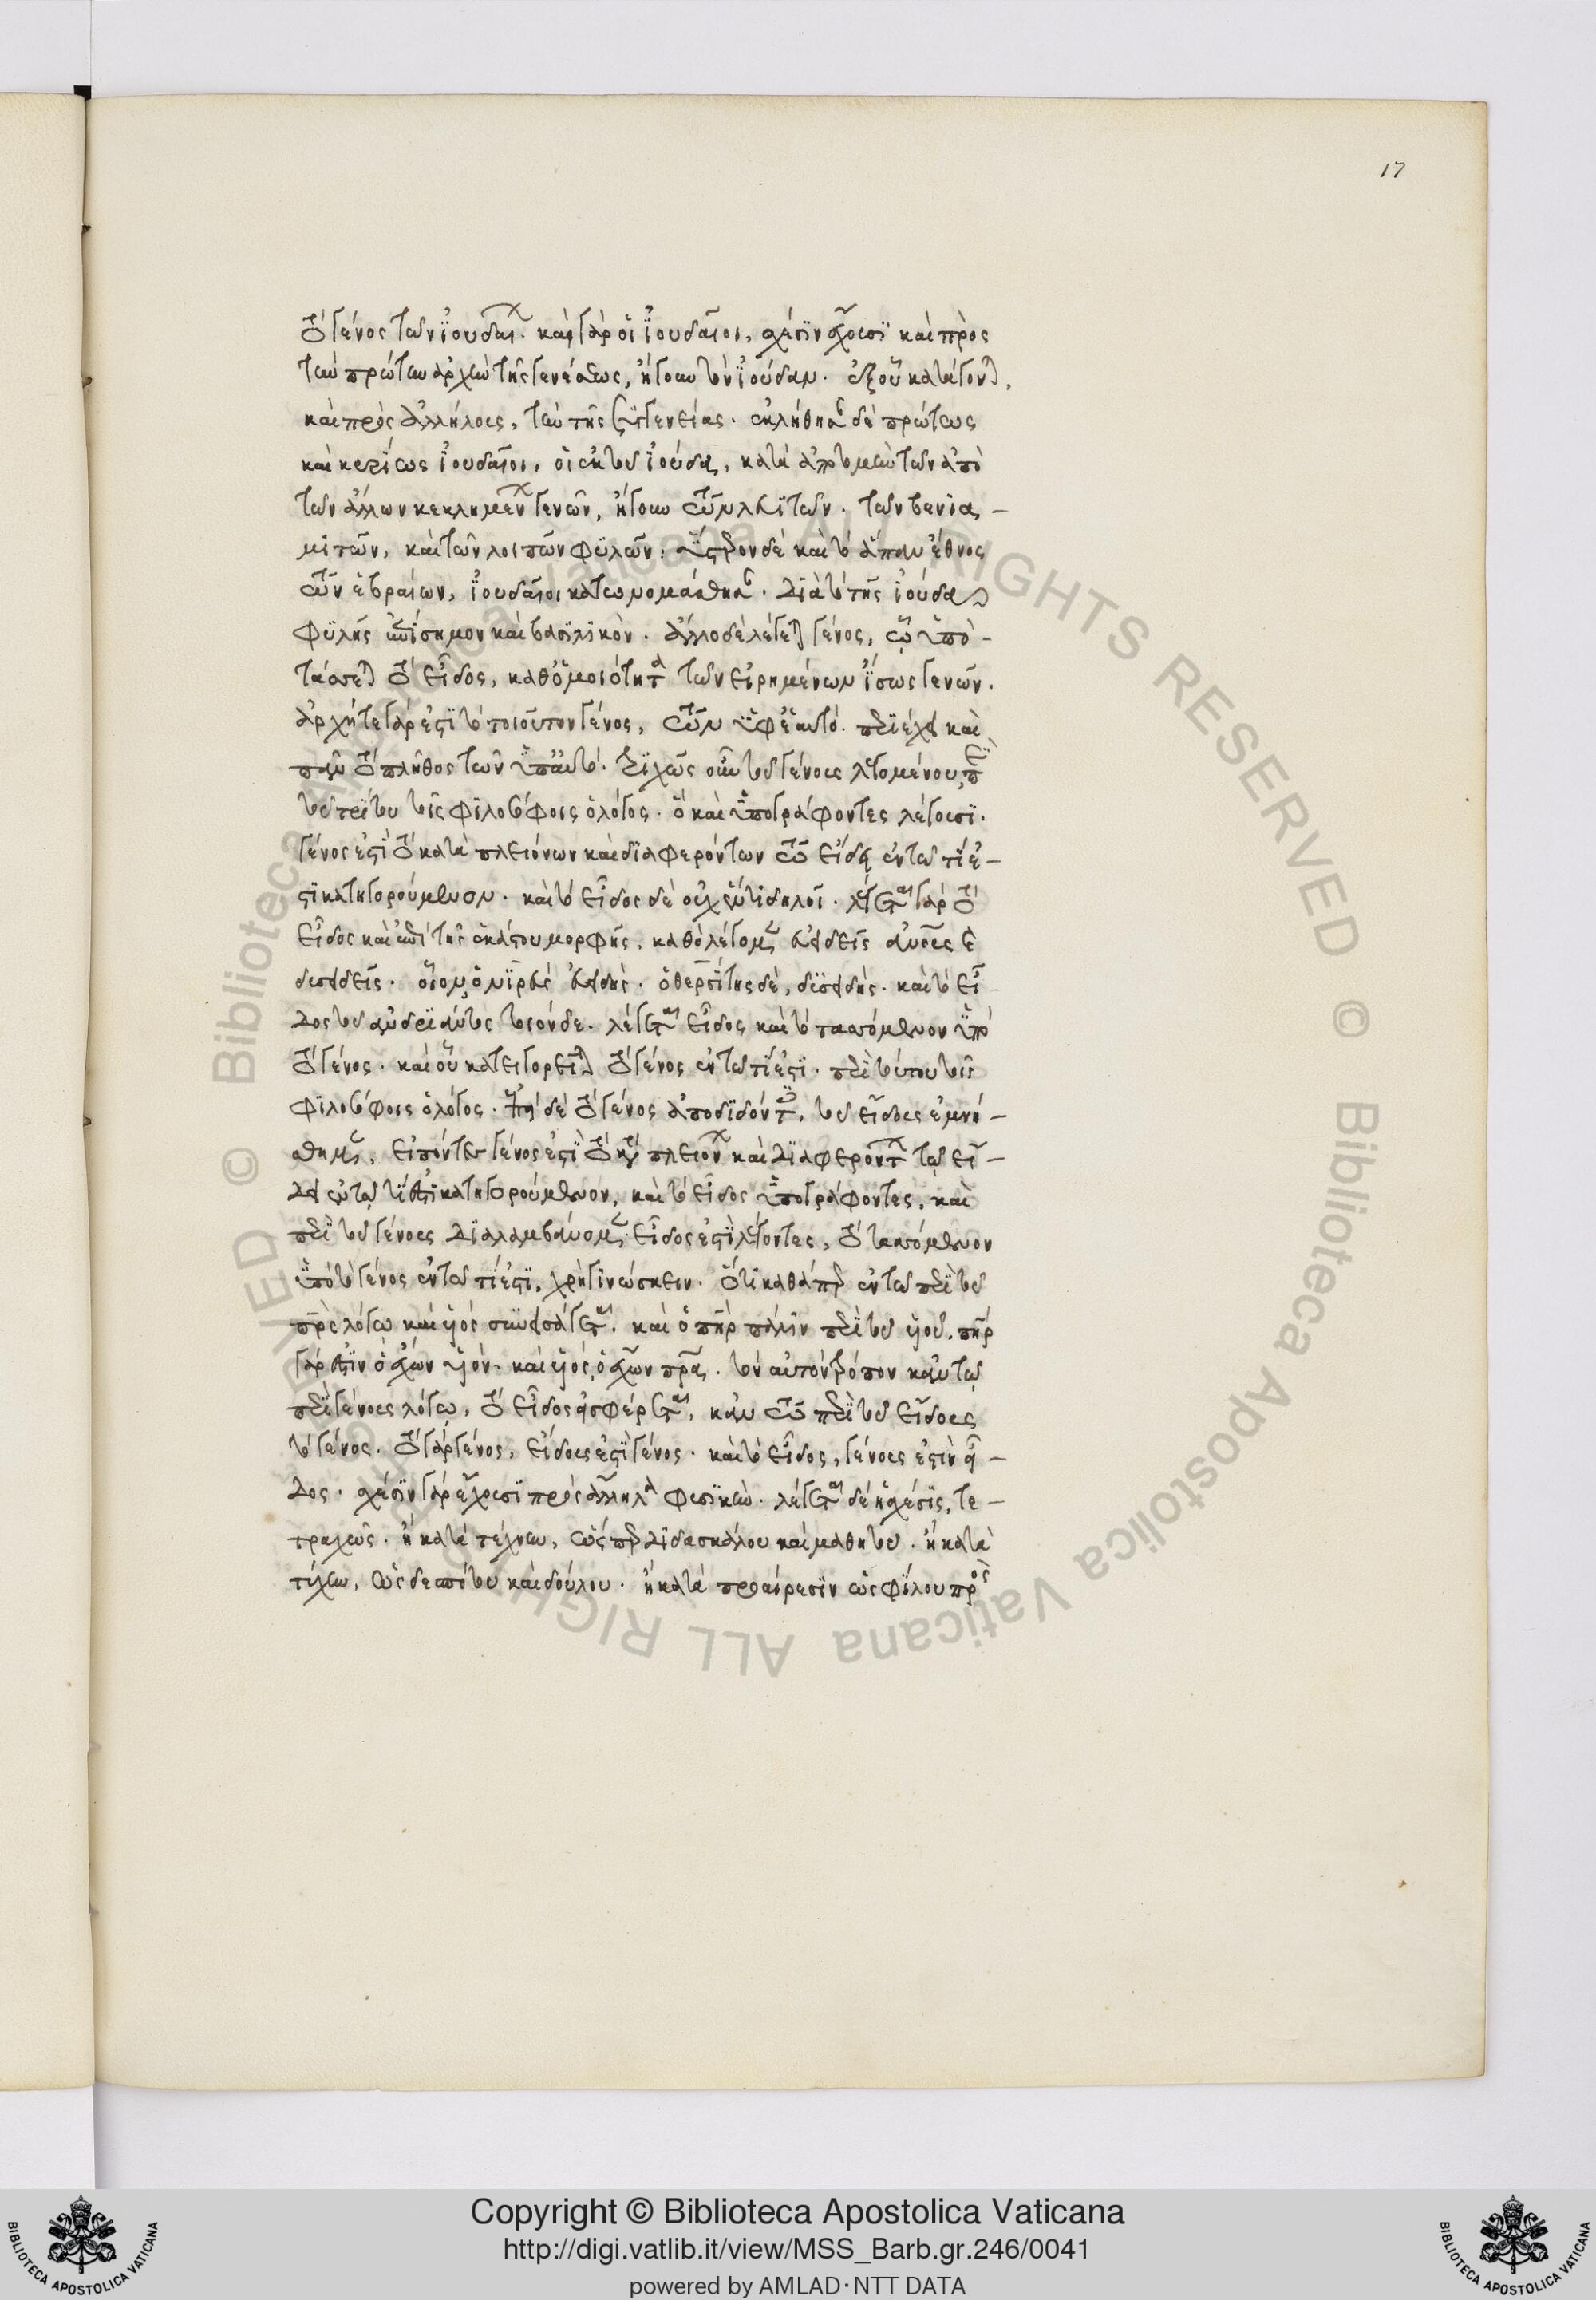 17
τὸ γένος τῶν ἰουδαίων. καὶ γὰρ οἱ ἰουδαῖοι, σχέσιν ἔχουσι καὶ πρὸς
τὴν πρώτην ἀρχὴν τῆς γενέσεως, ἤγουν τὸν ἰούδαν. ἐξ οὗ κατάγονται,
καὶ πρὸς ἀλλήλους, τὴν τῆς συγγενείας. ἐκλήθησαν δὲ πρώτως
καὶ κυρίως ἰουδαῖοι, οἱ ἐκ τοῦ ἰούδα, κατὰ ἀποτομὴν τῶν ἀπὸ
τῶν ἄλλων κεκλημένων γενῶν, ἤγουν τῶν λευϊτῶν. τῶν βενια-
μιτῶν, καὶ τῶν λοιπῶν φυλῶν. ὕστερον δὲ καὶ τὸ ἅπαν ἔθνος
τῶν ἑβραίων, ἰουδαῖοι κατωνομάσθησαν. διὰ τὸ τῆς ἰούδα
φυλῆς ἐπίσημον καὶ βασιλικὸν. ἄλλο δὲ λέγεται γένος, ᾧ ὑπο-
τάσσεται τὸ εἶδος, καθ' ὁμοιότητα τῶν εἰρημένων ἴσως γενῶν.
ἀρχή τε γάρ ἐστι τὸ τοιοῦτον γένος, τῶν ὑφ' ἑαυτό. περιέχει καὶ
πᾶν τὸ πλῆθος τῶν ὑπ' αὐτό. τριχῶς οὖν τοῦ γένους λεγομένου, περὶ
τοῦ τρίτου τοῖς φιλοσόφοις ὁ λόγος. ὃ καὶ ὑπογράφοντες λέγουσι.
γένος ἐστὶ τὸ κατὰ πλειόνων καὶ διαφερόντων τῷ εἴδει ἐν τῷ τί ἐ-
στι κατηγορούμενον. καὶ τὸ εἶδος δὲ οὐχ ἕν τι δηλοῖ. λέγεται γὰρ τὸ
εἶδος καὶ ἐπὶ τῆς ἑκάστου μορφῆς. καθὸ λέγομεν εὐειδεῖς ἄνδρας καὶ
δυσειδεῖς. οἷον, ὁ νιρεὺς εὐειδής. ὁ θερσίτης δὲ, δυσειδής. καὶ τὸ εἶ-
δος τοῦ ἀνδριάντος τοιόνδε. λέγεται εἶδος καὶ τὸ ταττόμενον ὑπὸ
τὸ γένος. καὶ οὗ κατηγορεῖται τὸ γένος ἐν τῷ τί ἐστι. περὶ τούτου τοῖς
φιλοσόφοις ὁ λόγος. ἐπεὶ δὲ τὸ γένος ἀποδιδόντες, τοῦ εἴδους ἐμνή-
σθημεν, εἰπόντες γένος ἐστὶ τὸ κατὰ πλειόνων καὶ διαφερόντων τῷ εἴ-
δει ἐν τῷ τί ἐστι κατηγορούμενον, καὶ τὸ εἶδος ὑπογράφοντες, καὶ
περὶ τοῦ γένους διαλαμβάνομεν. εἶδός ἐστι λέγοντες, τὸ ταττόμενον
ὑπὸ τὸ γένος ἐν τῷ τί ἐστι, χρὴ γινώσκειν. ὅτι καθάπερ ἐν τῷ περὶ τοῦ
πατρὸς λόγῳ καὶ υἱὸς συνεισάγεται. καὶ ὁ πατὴρ πάλιν περὶ τοῦ υἱοῦ. πατὴρ
γάρ ἐστιν ὁ ἔχων υἱόν. καὶ υἱός, ὁ ἔχων πατέρα. τὸν αὐτὸν τρόπον κἀν τῷ
περὶ γένους λόγῳ, τὸ εἶδος εἰσφέρεται, κἀν τῷ περὶ τοῦ εἴδους
τὸ γένος. τὸ γὰρ γένος, εἴδους ἐστὶ γένος. καὶ τὸ εἶδος, γένους ἐστὶν εἶ-
δος. σχέσιν γὰρ ἔχουσι πρὸς ἄλληλα φυσικὴν. λέγεται δὲ ἡ σχέσις, τε-
τραχῶς. ἢ κατὰ τέχνην, ὥσπερ διδασκάλου καὶ μαθητοῦ. ἢ κατὰ
τύχην, ὡς δεσπότου καὶ δούλου. ἢ κατὰ προαίρεσιν ὡς φίλου πρὸς
Copyright © Biblioteca Apostolica Vaticana
http://digi.vatlib.it/view/MSS_Barb.gr.246/0041
powered by AMLAD·NTT DATA
BIBLIOTECA APOSTOLICA VATICANA
BIBLIOTECA APOSTOLICA VATICANA
© Biblioteca Apostolica Vaticana ALL RIGHTS RESERVED © Biblioteca Apostolica Vaticana ALL RIGHTS RESERVED